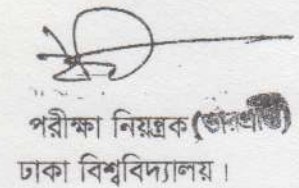 পরীক্ষা নিয়ন্ত্রক (ভারপ্রাপ্ত)
ঢাকা বিশ্ববিদ্যালয়।